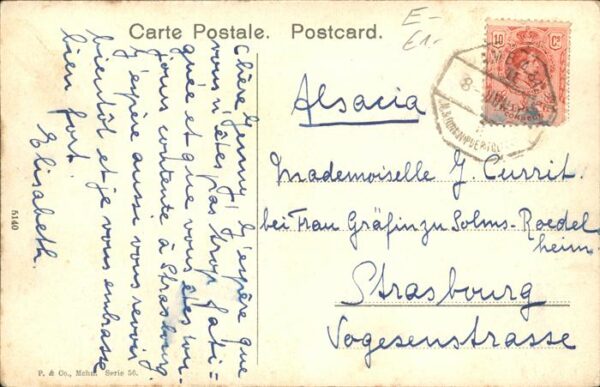 Carte Postale. Postcard.
E-
E1.-
10 Cs
Alsacia
Mademoiselle J. Currit.
bei Frau Gräfin zu Solms-Roedel
heim.
Strasbourg
Vogesenstrasse
Chère Jenny! J'espère que
vous n'êtes pas trop fati-
guée et que vous êtes tou-
jours contente à Strasbourg.
J'espère aussi vous revoir
bientôt et je vous embrasse
bien fort.
Elisabeth.
5140
P. & Co., Mchn. Serie 56.